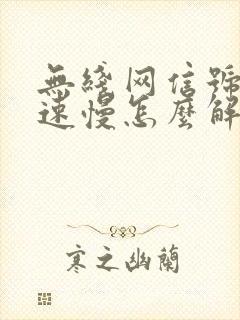 無綫网信號
速慢怎麽解
寒之幽蘭